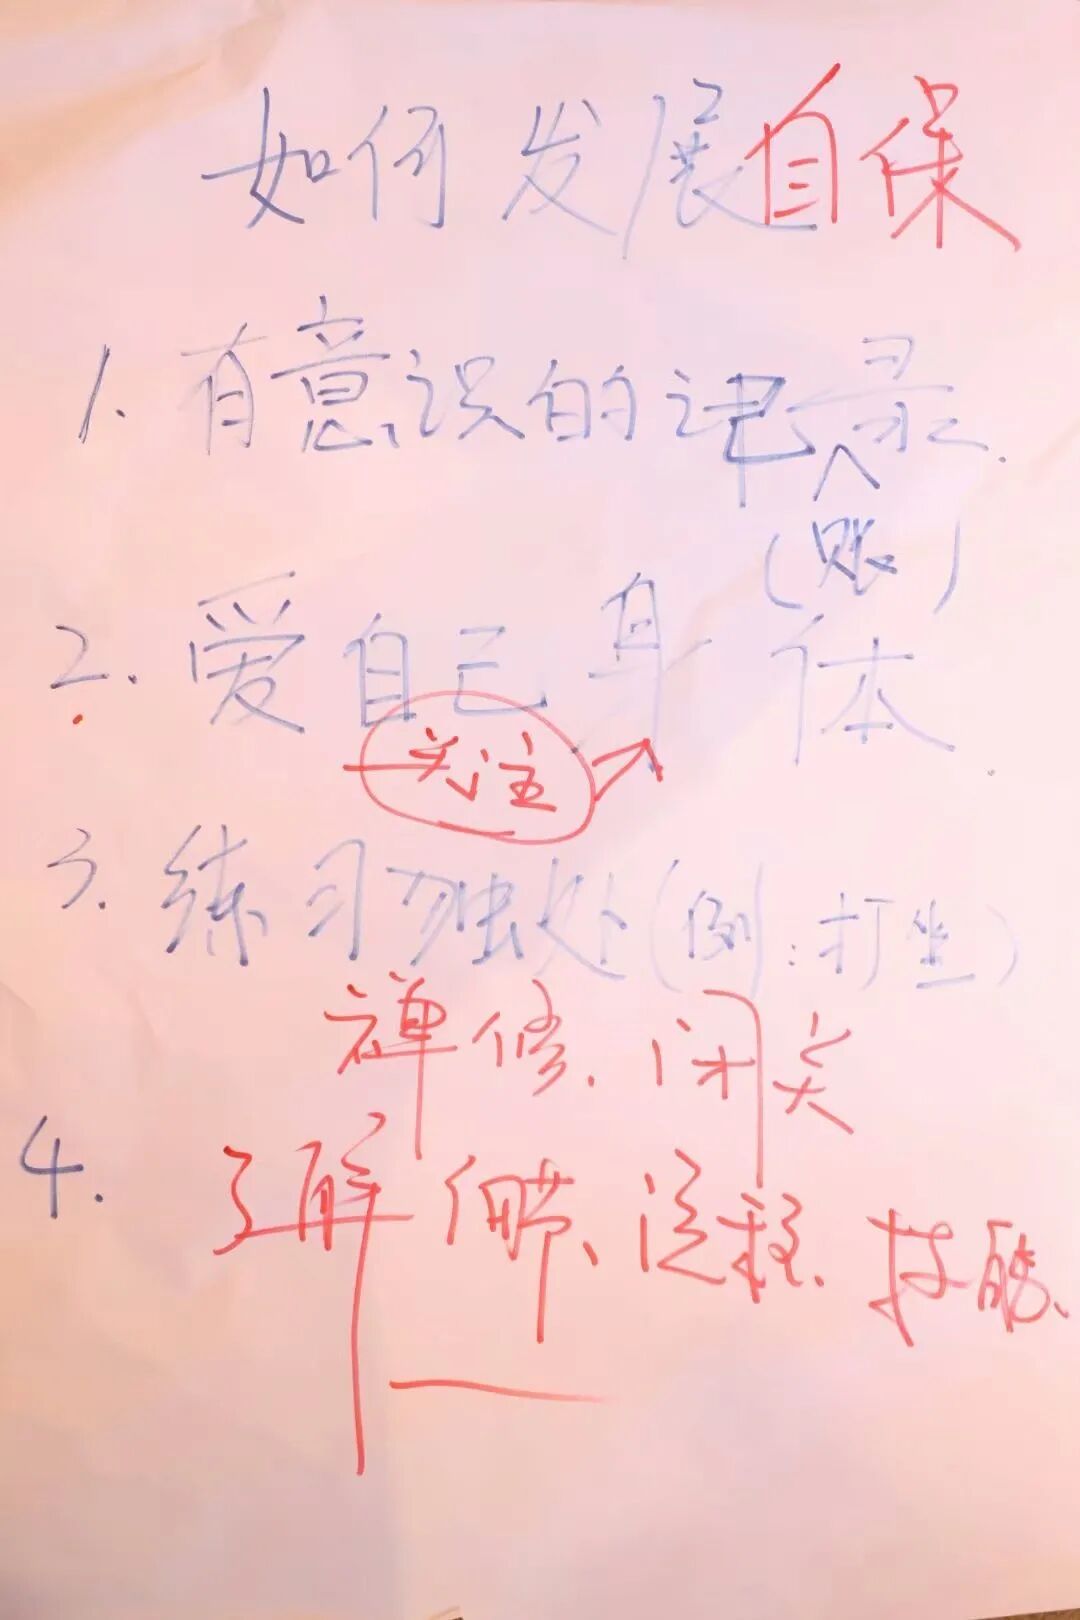 如何发展自保
1. 有意识的记录.
(账)
2. 爱自己身体.
关注
3. 练习独处(例:打坐)
禅修、闭关
4. 了解细节、流程、技能、